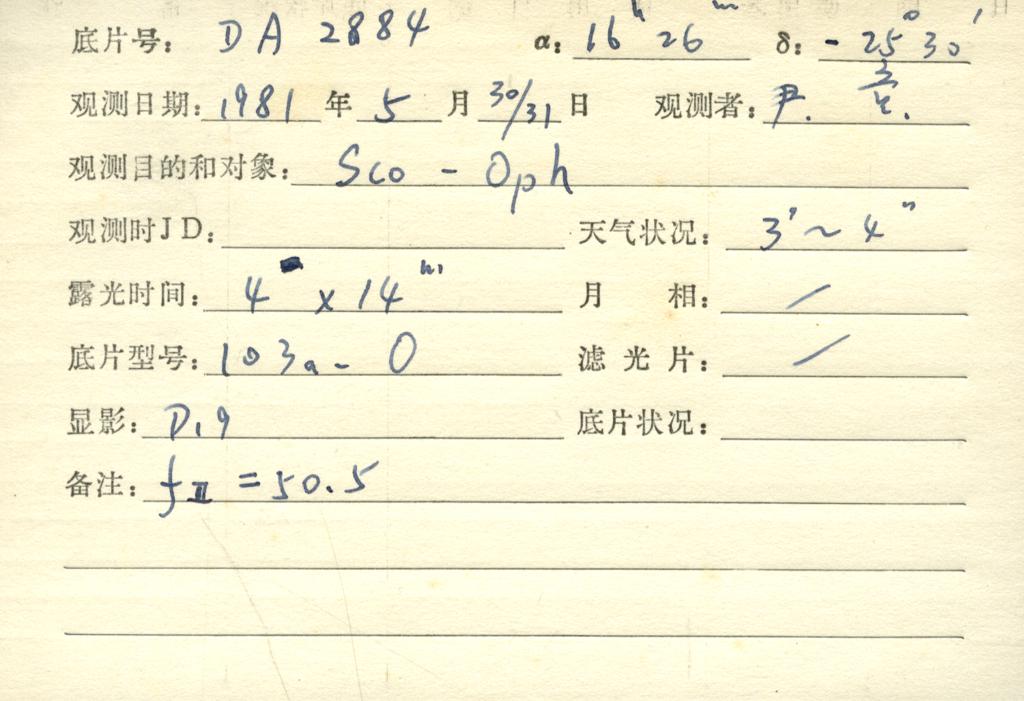 底片号: DA 2884 α: 16h 26m δ: -25° 30′
观测日期: 1981 年 5 月 30/31 日 观测者: 尹.
观测目的和对象: Sco - Oph
观测时JD: 天气状况: 3″ ~ 4″
露光时间: 4 x 14m 月 相: /
底片型号: 103a-O 滤光片: /
显影: D.19 底片状况:
备注: fⅡ = 50.5